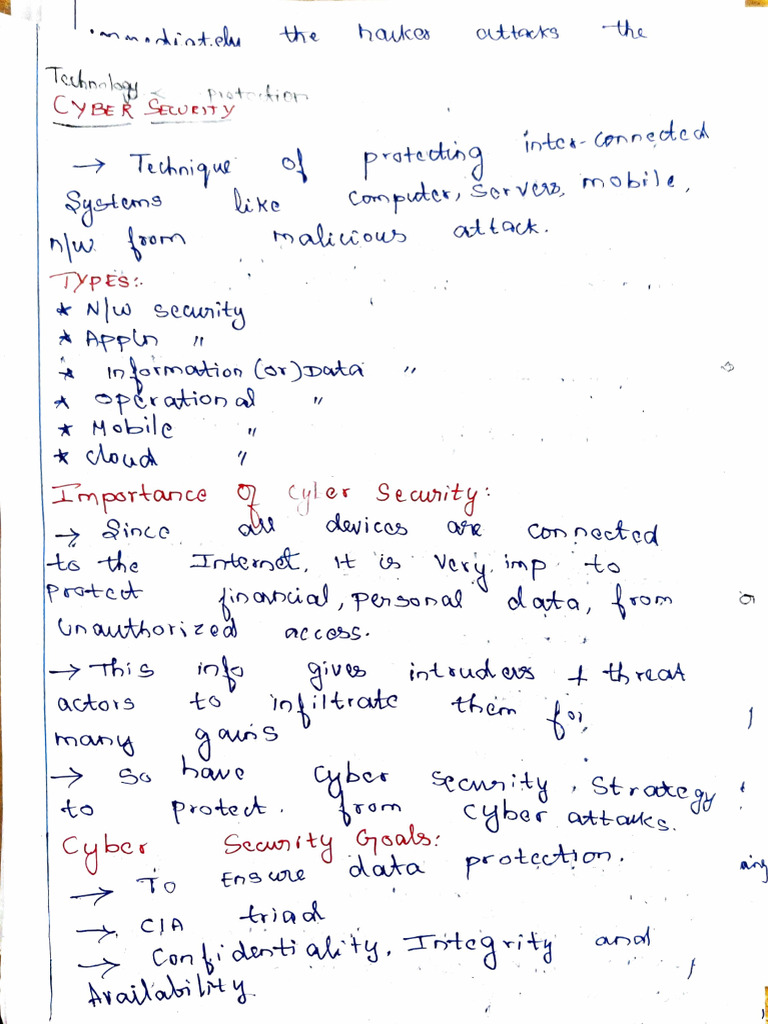 the hacker attacks the
Technology protection
CYBER SECURITY
→ Technique of protecting inter-connected
Systems like computer, servers, mobile,
n/w from malicious attack.
TYPES:
* N/W security
* Appln "
* Information (or) Data "
* Operational "
* Mobile "
* cloud "
Importance Of Cyber Security:
→ Since all devices are connected
to the Internet, It is very imp to
Protect financial, personal data, from
unauthorized access.
→ This info gives intruders + threat
actors to infiltrate them for
many gains
→ So have cyber security, Strategy
to protect from cyber attacks.
Cyber Security Goals:
→ To Ensure data protection.
→ CIA triad
→ Confidentiality, Integrity and
Availability.